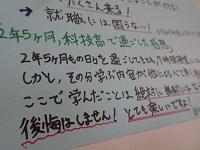 たくさん来る!
→ 就職には困らない!
2年5ヶ月、科技高で過ごした感想
2年5ヶ月もの日々を過ごしてきて、
しかし、その分学ぶ内容が他の
ここで学んだことは絶対に無駄には
後悔はしません! とても楽しいですよ!